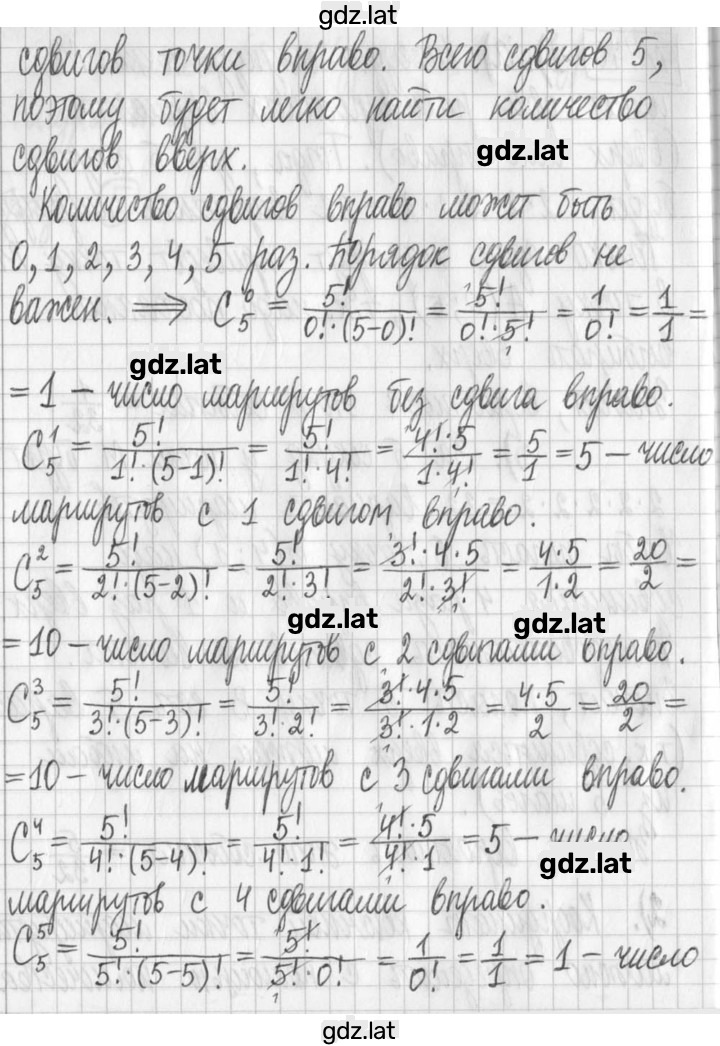 gdz.lat
сдвигов точки вправо. Всего сдвигов 5,
поэтому будет легко найти количество
сдвигов вверх.
gdz.lat
Количество сдвигов вправо может быть
0, 1, 2, 3, 4, 5 раз. Порядок сдвигов не
важен. ⟹ C₅⁰ = 5!/(0!·(5-0)!) = 5!/(0!·5!) = 1/0! = 1/1 =
gdz.lat
= 1 – число маршрутов без сдвига вправо.
C₅¹ = 5!/(1!·(5-1)!) = 5!/(1!·4!) = (4!·5)/(1·4!) = 5/1 = 5 – число
маршрутов с 1 сдвигом вправо.
C₅² = 5!/(2!·(5-2)!) = 5!/(2!·3!) = (3!·4·5)/(2!·3!) = (4·5)/(1·2) = 20/2 =
gdz.lat
gdz.lat
= 10 – число маршрутов с 2 сдвигами вправо.
C₅³ = 5!/(3!·(5-3)!) = 5!/(3!·2!) = (3!·4·5)/(3!·1·2) = (4·5)/2 = 20/2 =
= 10 – число маршрутов с 3 сдвигами вправо.
C₅⁴ = 5!/(4!·(5-4)!) = 5!/(4!·1!) = (4!·5)/(4!·1) = 5 – число
gdz.lat
маршрутов с 4 сдвигами вправо.
C₅⁵ = 5!/(5!·(5-5)!) = 5!/(5!·0!) = 1/0! = 1/1 = 1 – число
gdz.lat